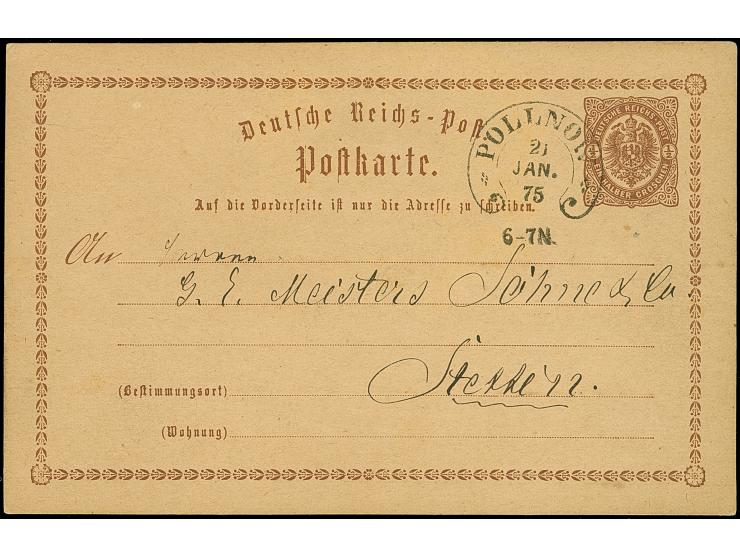 Deutsche Reichs-Post
Postkarte.
Auf die Vorderseite ist nur die Adresse zu schreiben.
POLLNOW
21
JAN.
75
6-7N.
DEUTSCHE REICHS-POST
½ ½
EIN HALBER GROSCHEN
An Herren
G. E. Meisters Söhne & Co.
Stettin.
(Bestimmungsort)
(Wohnung)